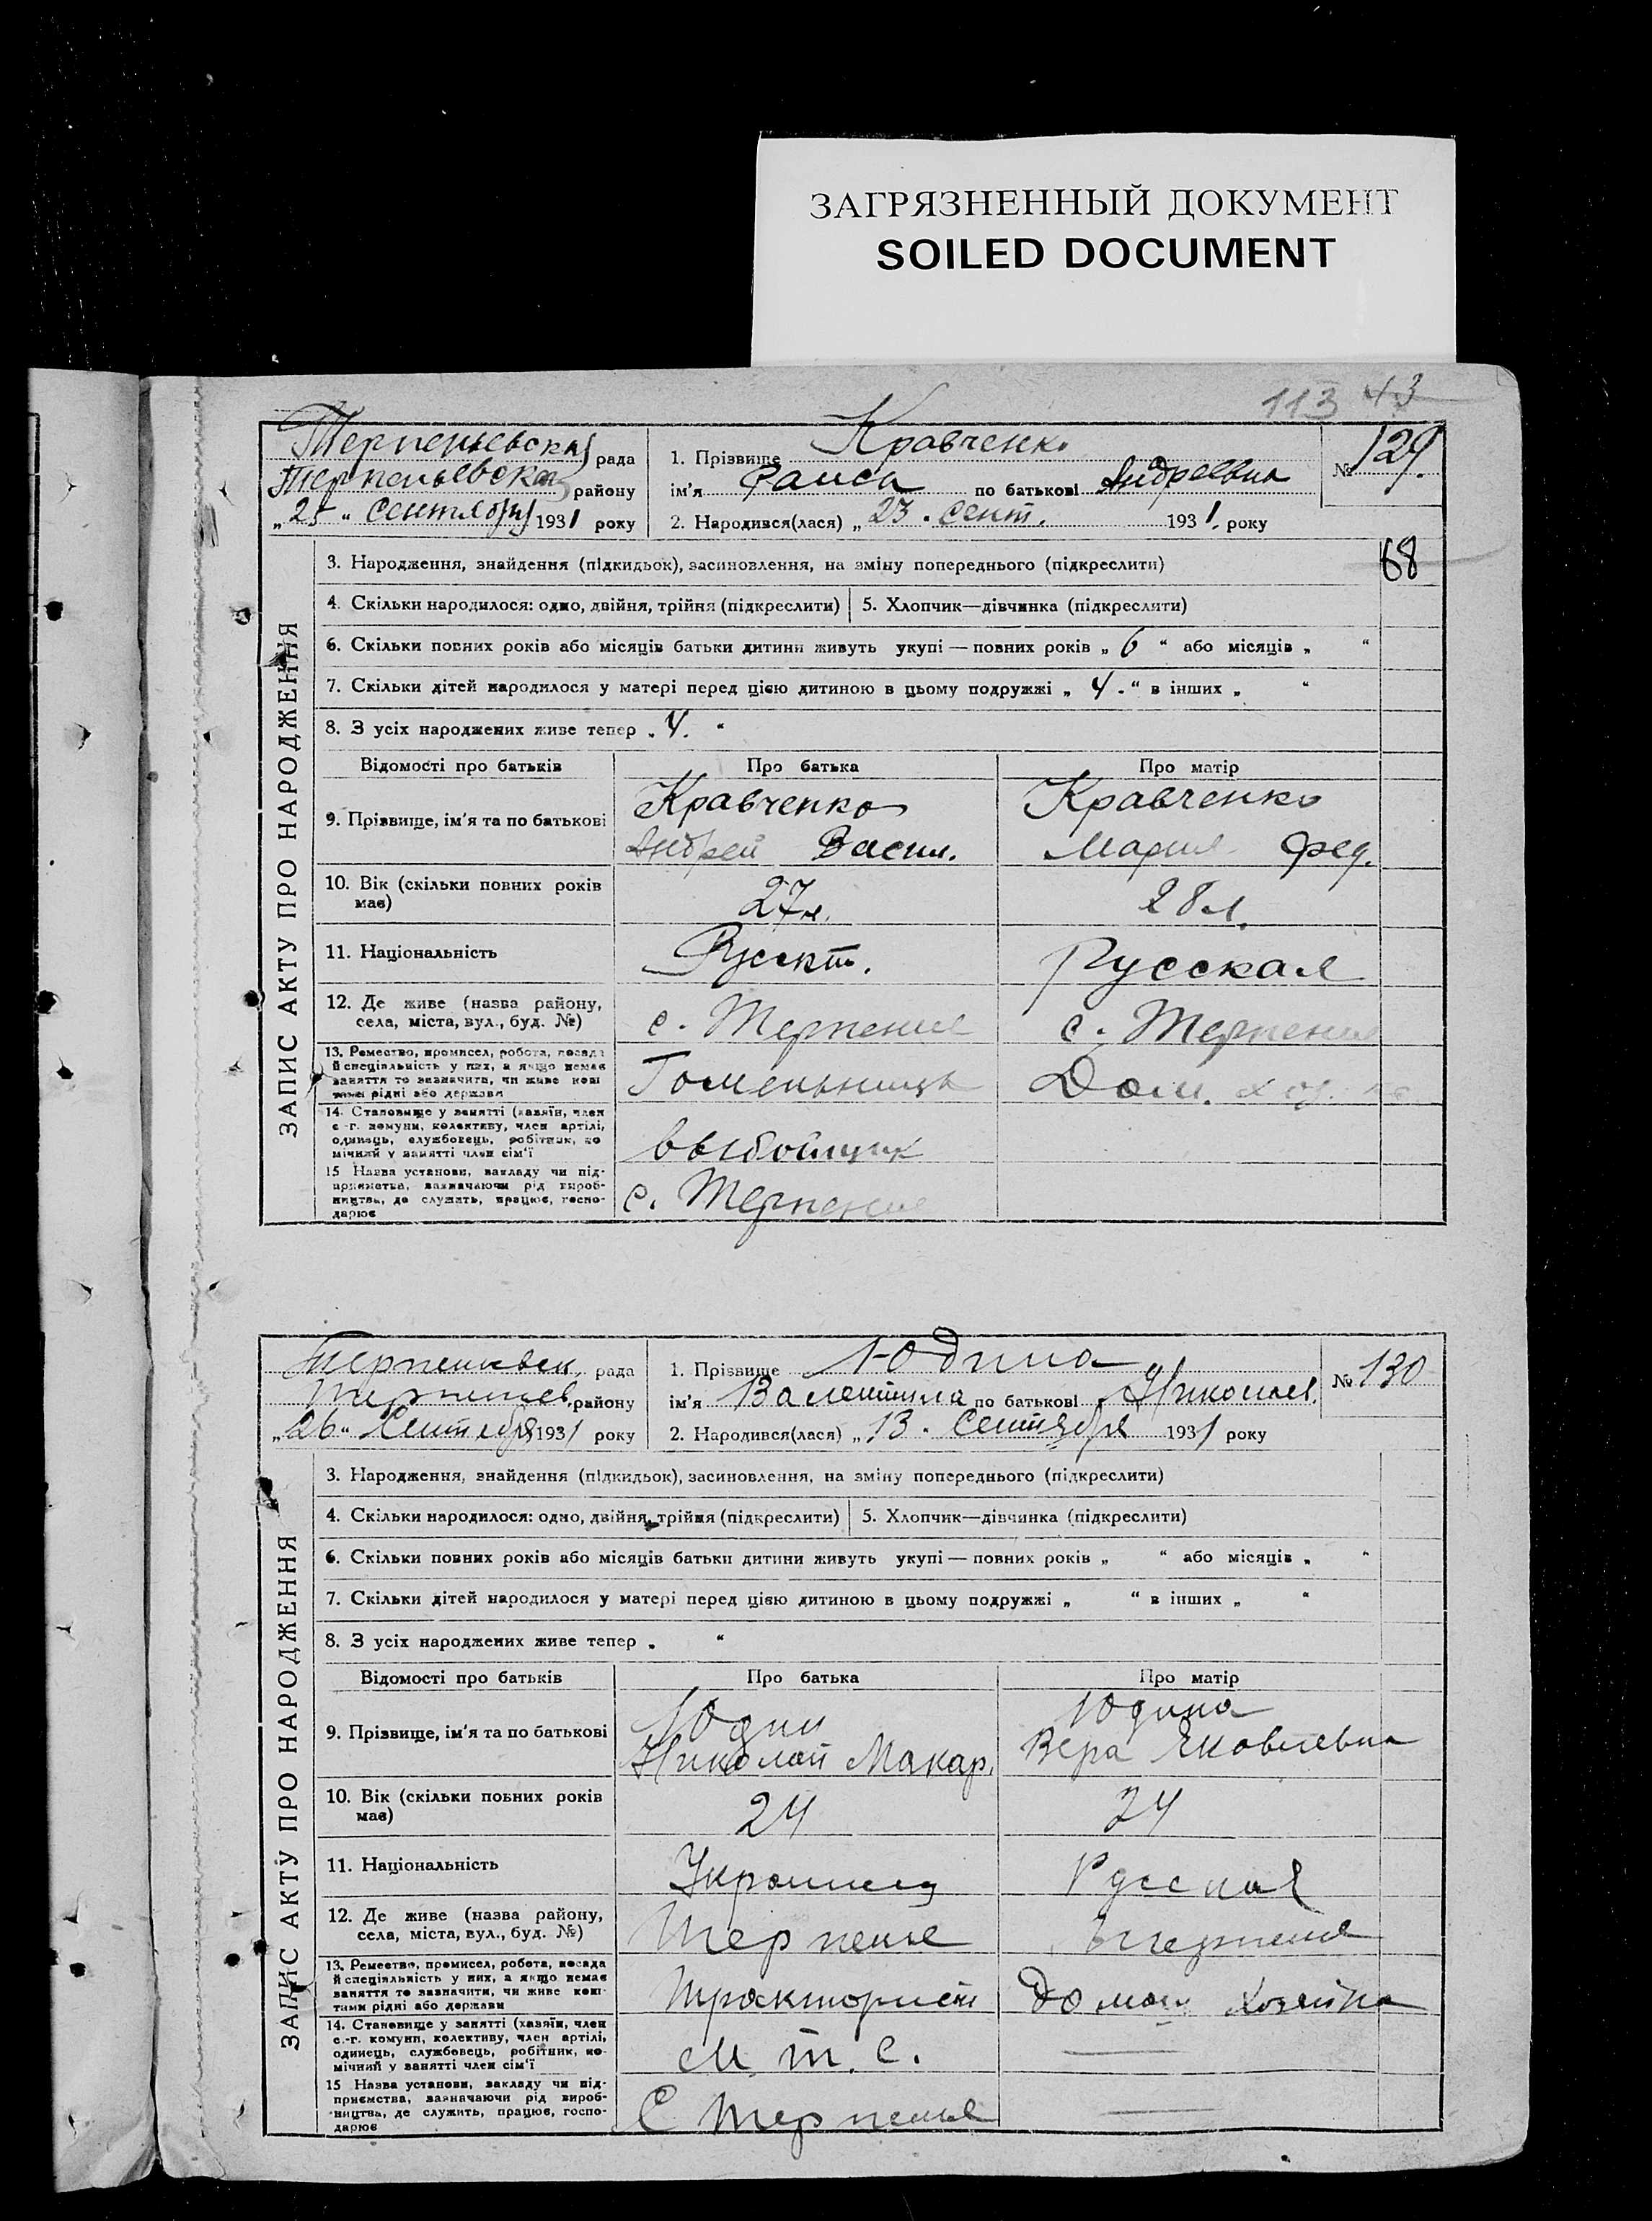 ЗАГРЯЗНЕННЫЙ ДОКУМЕНТ
SOILED DOCUMENT
113 43
Терпеньевская рада
Терпеньевска району
„25“ Сентября 1931 року
1. Прізвище Кравченко
ім'я Раиса по батькові Андреевна
2. Народився(лася) „23. Сент. 1931. року
№ 129.
68
ЗАПИС АКТУ ПРО НАРОДЖЕННЯ
3. Народження, знайдення (підкидьок), засиновлення, на зміну попереднього (підкреслити)
4. Скільки народилося: одно, двійня, трійня (підкреслити) 5. Хлопчик—дівчинка (підкреслити)
6. Скільки повних років або місяців батьки дитини живуть укупі — повних років „ 6 “ або місяців „ “
7. Скільки дітей народилося у матері перед цією дитиною в цьому подружжі „ 4. “ в інших „ “
8. З усіх народжених живе тепер „ 4. “
Відомості про батьків Про батька Про матір
9. Прізвище, ім'я та по батькові
Кравченко
Андрей Васил.
Кравченко
Мария Фед.
10. Вік (скільки повних років
має)
27 л.
28 л.
11. Національність
Русск.
Русская
12. Де живе (назва району,
села, міста, вул., буд. №)
с. Терпение
с. Терпение
13. Ремество, промисел, робота, посада
й спеціяльність у них, а якщо немає
заняття то зазначити, чи живе кош
тами рідні або держави
Дом. хоз.
14. Становище у занятті (хазяїн, член
с.-г. комуни, колективу, член артілі,
одинець, службовець, робітник, по
мічний у занятті член сім'ї
выбойщик
15 Назва установи, закладу чи під-
приємства, зазначаючи рід вироб-
ництва, де служить, працює, госпо-
дарює
с. Терпение
Терпеньевск. рада
Терпениев. району
„26“ Сентября 1931 року
1. Прізвище Юдина
ім'я Валентина по батькові Николаев.
2. Народився(лася) „13. Сентября 1931 року
№ 130
ЗАПИС АКТУ ПРО НАРОДЖЕННЯ
3. Народження, знайдення (підкидьок), засиновлення, на зміну попереднього (підкреслити)
4. Скільки народилося: одно, двійня, трійня (підкреслити) 5. Хлопчик—дівчинка (підкреслити)
6. Скільки повних років або місяців батьки дитини живуть укупі — повних років „ “ або місяців „ “
7. Скільки дітей народилося у матері перед цією дитиною в цьому подружжі „ “ в інших „ “
8. З усіх народжених живе тепер „ “
Відомості про батьків Про батька Про матір
9. Прізвище, ім'я та по батькові
Юдин
Николай Макар.
Юдина
Вера Яковлевна
10. Вік (скільки повних років
має)
24
24
11. Національність
Украинец
Русская
12. Де живе (назва району,
села, міста, вул., буд. №)
Терпенье
Терпение
13. Ремество, промисел, робота, посада
й спеціяльність у них, а якщо немає
заняття то зазначити, чи живе кош-
тами рідні або держави
Тракторист
Домаш хозяйка
14. Становище у занятті (хазяїн, член
с.-г. комуни, колективу, член артілі,
одинець, службовець, робітник, по-
мічний у занятті член сім'ї
М. Т. С.
15 Назва установи, закладу чи під-
приємства, зазначаючи рід вироб-
ництва, де служить, працює, госпо-
дарює
С Терпенье